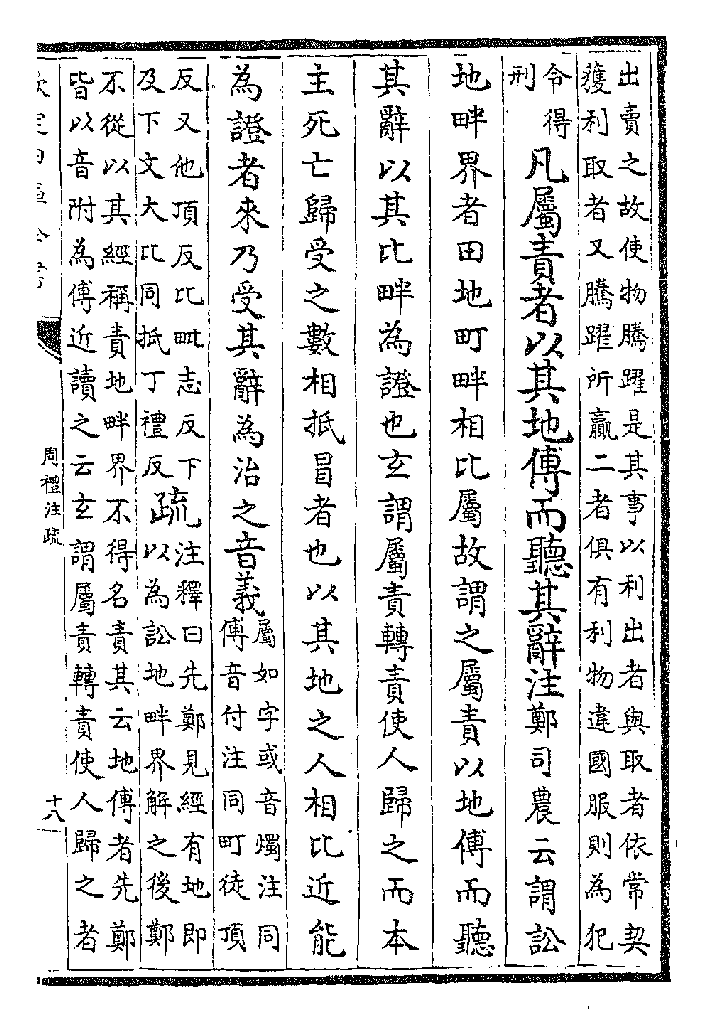 出賣之故使物騰躍是其事以利出者與取者依常契
獲利取者又騰躍所贏二者俱有利物違國服則為犯
令得
刑
凡屬責者以其地傅而聽其辭注鄭司農云謂訟
地畔界者田地町畔相比屬故謂之屬責以地傅而聽
其辭以其比畔為證也玄謂屬責轉責使人歸之而本
主死亡歸受之數相抵冒者也以其地之人相比近能
為證者來乃受其辭為治之音義
屬如字或音燭注同
傅音付注同町徒頂
反又他頂反比毗志反下
及下文大比同抵丁禮反
疏
注釋曰先鄭見經有地即
以為訟地畔界解之後鄭
不從以其經稱責地畔界不得名責其云地傅者先鄭
皆以音附為傅近讀之云玄謂屬責轉責使人歸之者
周禮注疏
十八